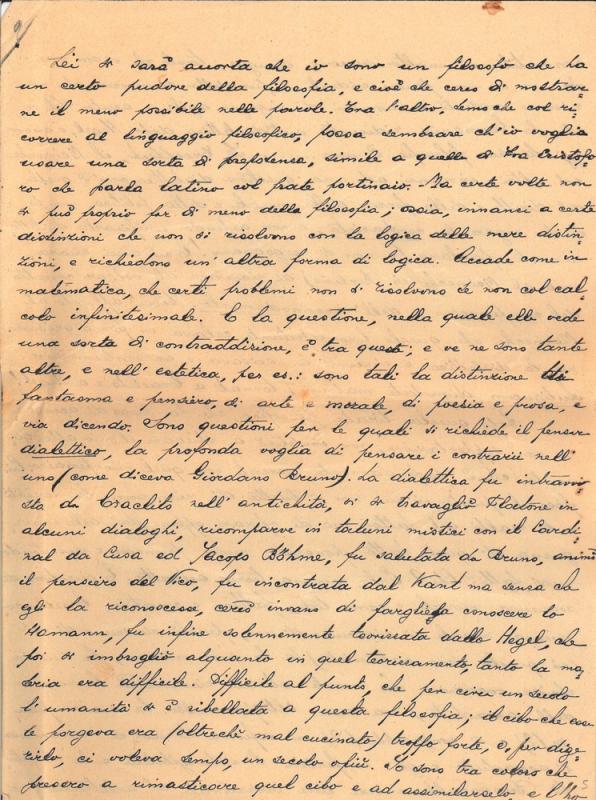 Lei si sarà accorta che io sono un filosofo che ha
un certo pudore della filosofia, e cioè che cerco di mostrar-
ne il meno possibile nelle parole. Tra l'altro, temo che col ri-
correre al linguaggio filosofico, possa sembrare ch'io voglia
usare una sorta di prepotenza, simile a quella di Fra Cristofo-
ro che parla latino col frate portinaio. Ma certe volte non
si può proprio far di meno della filosofia; ossia, innanzi a certe
distinzioni che non si risolvono con la logica delle mere distin-
zioni, e richiedono un'altra forma di logica. Accade come in
matematica, che certi problemi non si risolvono se non col cal-
colo infinitesimale. E la questione, nella quale ella vede
una sorta di contraddizione, è tra queste; e ve ne sono tante
altre, e nell'estetica, per es.: sono tali la distinzione di
fantasma e pensiero, di arte e morale, di poesia e prosa, e
via dicendo. Sono questioni per le quali si richiede il pensare
dialettico, la profonda voglia di pensare i contrarii nell'
uno (come diceva Giordano Bruno). La dialettica fu intravvi-
sta da Eraclito nell'antichità, vi si travagliò Platone in
alcuni dialoghi, ricomparve in taluni mistici con il Cardi-
nal da Cusa ed Jacopo Böhme, fu salutata da Bruno, animò
il pensiero del Vico, fu incontrata dal Kant ma senza che
egli la riconoscesse, cercò invano di fargliela conoscere lo
Hamann, fu infine solennemente teorizzata dallo Hegel, che
poi si imbrogliò alquanto in quel teorizzamento, tanto la ma-
teria era difficile. Difficile al punto, che per circa un secolo
l'umanità si è ribellata a questa filosofia; il cibo che essa
le porgeva era (oltreché mal cucinato) troppo forte, e, per dige-
rirlo, ci voleva tempo, un secolo o più. Io sono tra coloro che
presero a rimasticare quel cibo e ad assimilarselo, e l'ho